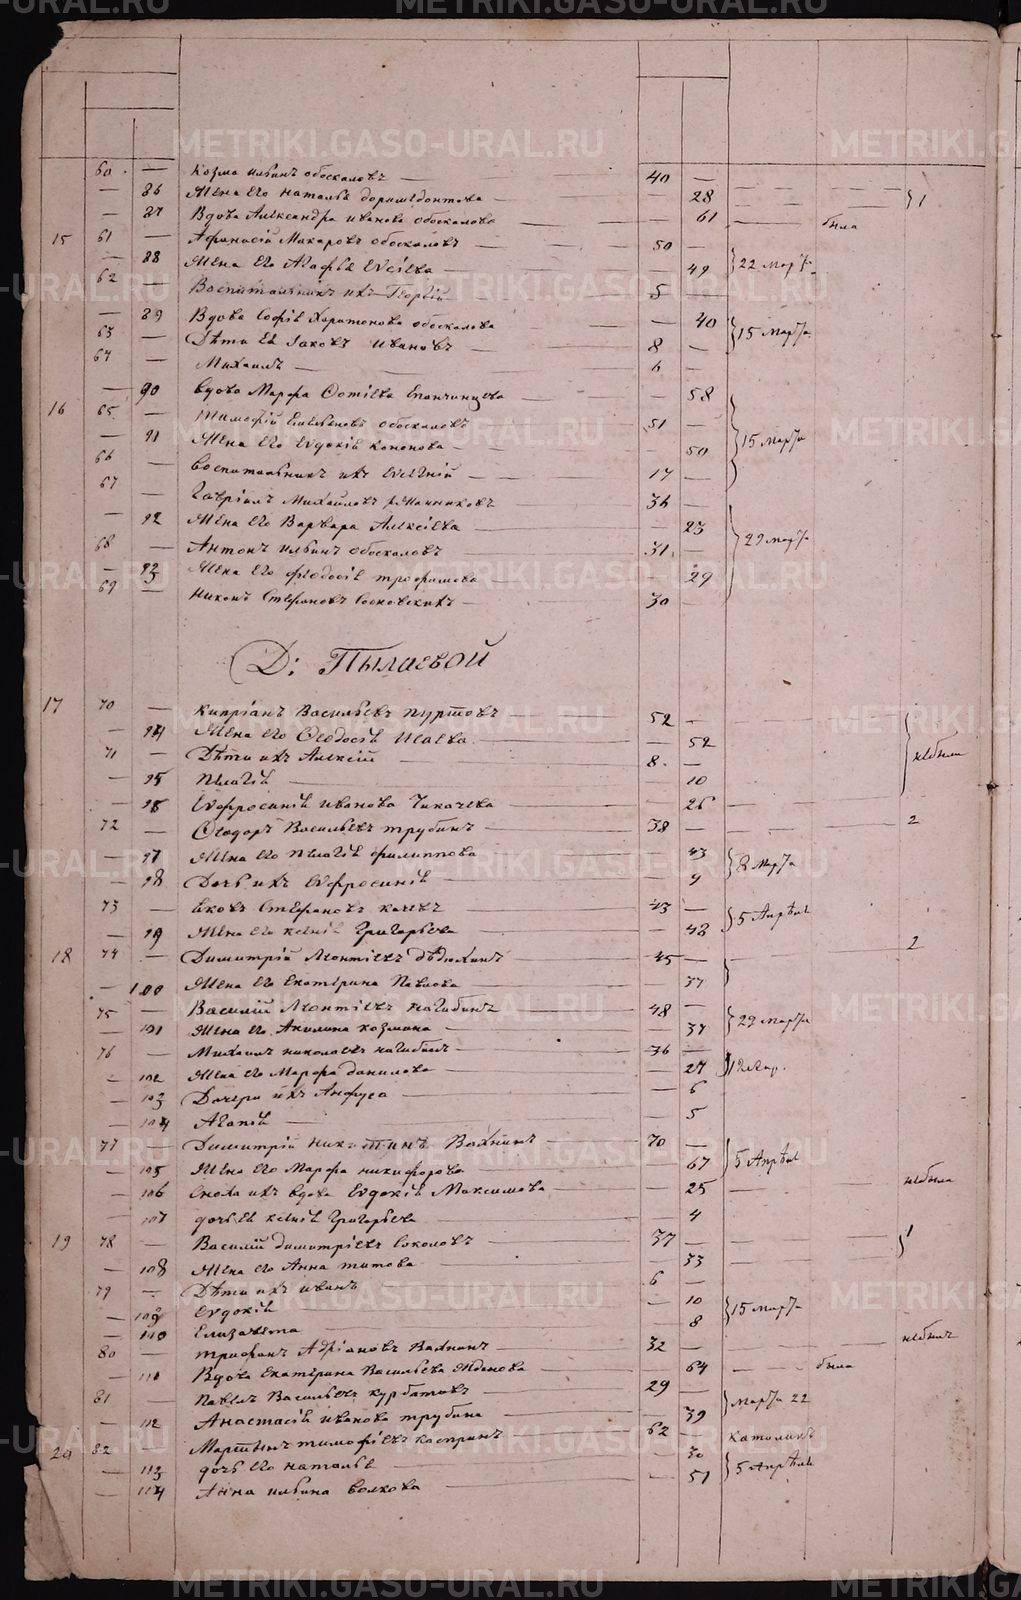 METRIKI.GASO-URAL.RU
60 — Козма Ильинъ Обоскаловъ — 40 —
— 86 Жена его Наталья Доримедонтова — 28 } 1
— 87 Вдова Александра Иванова Обоскалова — 61 — была
15 61 — Афанасій Макаровъ Обоскаловъ — 50 —
— 88 Жена его Агафья Евсіева — 49 } 22 Марта
62 — Воспитанникъ ихъ Георгій — 5 —
— 89 Вдова Софія Харитонова Обоскалова — 40 } 15 Марта
63 — Дѣти ея Іаковъ Ивановъ — 8 —
64 — Михаилъ — 6 —
— 90 Вдова Марфа Фотіева Епанчинцева — 58
16 65 — Тимофій Евсевіевъ Обоскаловъ — 51 —
— 91 Жена его Евдокія Кононова — 50 } 15 Марта
66 — Воспитанникъ ихъ Евгеній — 17 —
67 — Гавріилъ Михайловъ — 36 —
— 92 Жена его Варвара Алексіева — 23 } 29 Марта
68 — Антонъ Ильинъ Обоскаловъ — 31 —
— 93 Жена его Феодосія Трофимова — 29
69 — Никонъ Стефановъ Сосновскихъ — 30 —
Д: Пылаевой
17 70 — Кипріанъ Васильевъ Пуртовъ — 52 —
— 94 Жена его Феодосія Исаева — 52
71 — Дѣти ихъ Алексій — 8 — } небыли
— 95 Пелагія — 10
— 96 Евфросинія Иванова Чикачева — 26 —
72 — Феодоръ Васильевъ Трубинъ — 38 — 2
— 97 Жена его Пелагія Филиппова — 43 } 8 Марта
— 98 Дочь ихъ Евфросинія — 9
73 — Яковъ Стефановъ — 43 — } 5 Апрѣля
— 99 Жена его Ксенія Григорьева — 48
18 74 — Димитрій Леонтіевъ Дѣдюхинъ — 45 — 2
— 100 Жена его Екатерина Павлова — 37 }
75 — Василій Леонтіевъ Нагибинъ — 48 — } 29 Марта
— 101 Жена его Акилина Козмина — 37
76 — Михаилъ Николаевъ Нагибинъ — 36 —
— 102 Жена его Марфа Данилова — 27 }
— 103 Дочери ихъ Анфуса — 6
— 104 Агапія — 5
77 — Димитрій Никитинъ Вахнинъ — 70 —
— 105 Жена его Марфа Никифорова — 67 } 5 Апрѣля
— 106 Сноха ихъ вдова Евдокія Максимова — 25 — небыла
— 107 дочь ея Ксенія Григорьева — 4
19 78 — Василій Димитріевъ Соколовъ — 37 — 1
— 108 Жена его Анна Титова — 33
79 — Дѣти ихъ Иванъ — 6 —
— 109 Евдокія — 10 } 15 Марта
— 110 Елизавета — 8
80 — Трифонъ Адріановъ Вахнинъ — 32 — небылъ
— 110 Вдова Екатерина Васильева Жданова — 64 — была
81 — Павелъ Васильевъ Курбатовъ — 29 — } Марта 22
— 112 Анастасія Иванова Трубина — 39
20 82 — Мартынъ Тимофіевъ — 62 — католикъ
— 113 дочь его Наталья — 30 } 5 Апрѣля
— 114 Анна Ильина Волкова — 51